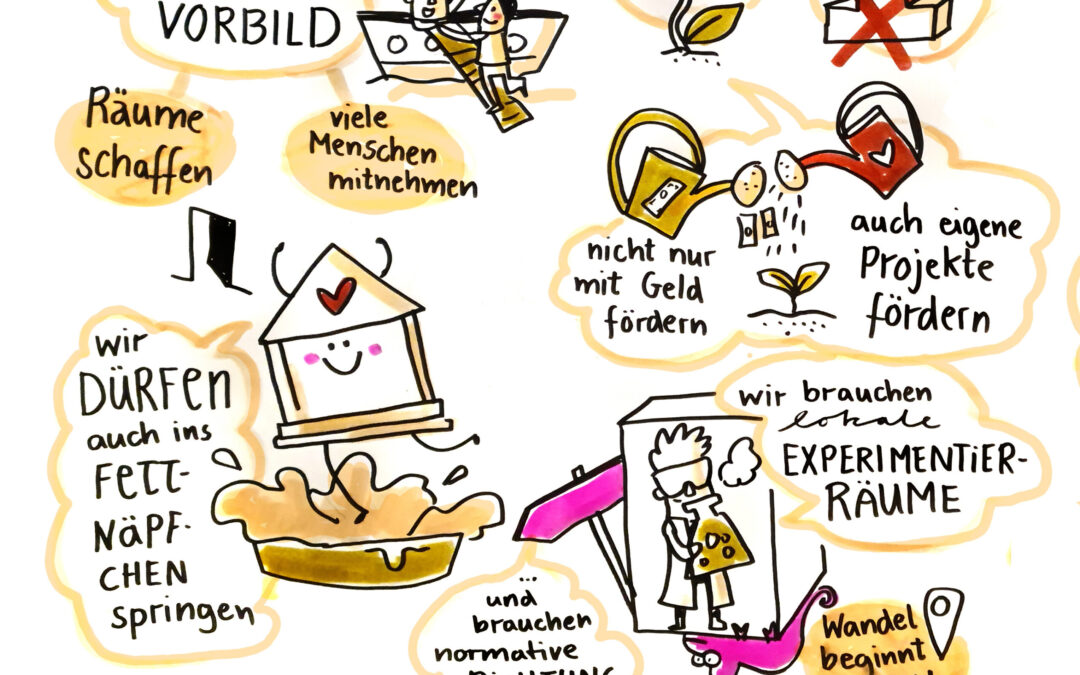 VORBILD
Räume
schaffen
viele
Menschen
mitnehmen
nicht nur
mit Geld
fördern
auch eigene
Projekte
fördern
wir
DÜRFEN
auch ins
FETT-
NÄPF-
CHEN
springen
wir brauchen
lokale
EXPERIMENTIER-
RÄUME
...
und
brauchen
normative
RICHTUNG
Wandel
beginnt